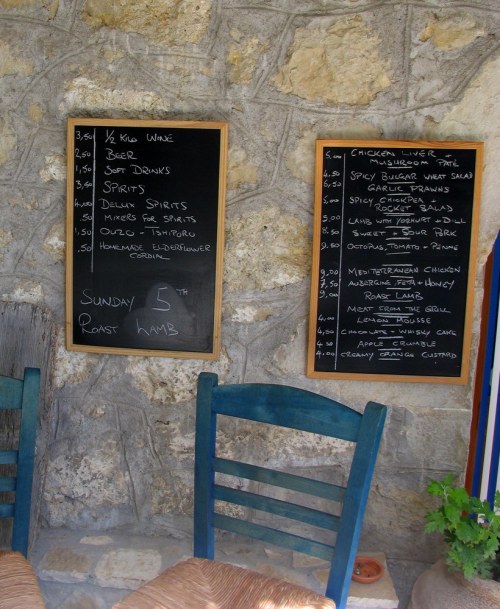 3,50 1/2 KILO WINE
2,50 BEER
1,50 SOFT DRINKS
3,50 SPIRITS
4,00 DELUX SPIRITS
,50 MIXERS FOR SPIRITS
1.50 OUZO - TSIPURU
.50 HOMEMADE ELDERFLOWER
CORDIAL
SUNDAY 5TH
ROAST LAMB
5,00 CHICKEN LIVER +
MUSHROOM PATÉ
4.50 SPICY BULGAR WHEAT SALAD
6,50 GARLIC PRAWNS
SPICY CHICKPEA +
ROCKET SALAD
5,00 LAMB WITH YOGHURT + DILL
8.50 SWEET + SOUR PORK
9.50 OCTOPUS, TOMATO + PENNE
9,00 MEDITERRANEAN CHICKEN
7,50 AUBERGINE, FETA + HONEY
9,00 ROAST LAMB
MEAT FROM THE GRILL
4,00 LEMON MOUSSE
4,50 CHOCOLATE + WHISKY CAKE
4.50 APPLE CRUMBLE
4.00 CREAMY ORANGE CUSTARD